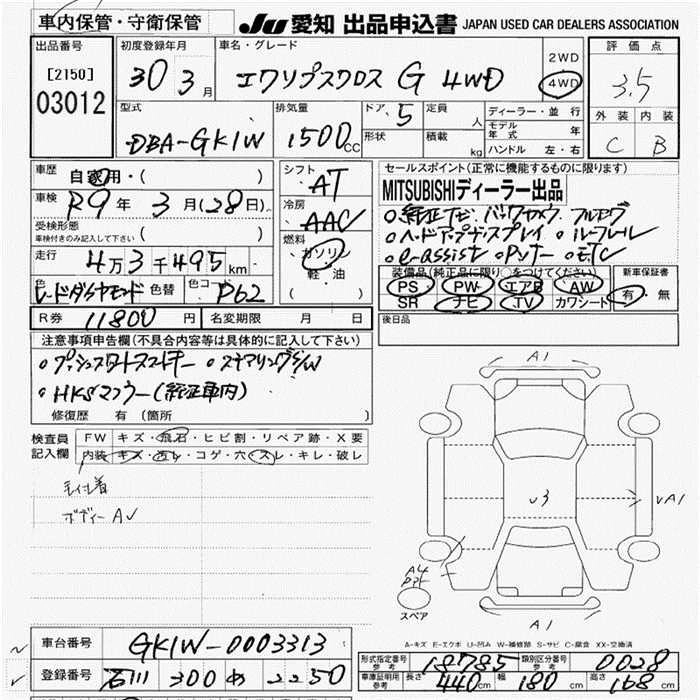 車内保管・守衛保管 JU 愛知 出品申込書 JAPAN USED CAR DEALERS ASSOCIATION
出品番号 初度登録年月 車名・グレード 評価点
[2150] 30 3月 エクリプスクロス G 4WD 2WD 4WD 3.5
03012
型式 排気量 ドア 5 定員 人 ディーラー・並行 外装 内装
DBA-GK1W 1500cc 形状 積載 kg モデル年式 年 C B
ハンドル 左・右
車歴 自家用・( ) シフト AT セールスポイント(正常に機能するものに限ります)
車検 R9年 3月(28日) 冷房 AAC MITSUBISHIディーラー出品
受検形態 ○純正ナビ バックカメラ フルセグ
車検付きのみ記入して下さい ( ) 燃料 ○ヘッドアップディスプレイ ○ルーフレール
走行 4万3千495km ガソリン 軽・油 ( ) ○e-assist ○Pスタート ○ETC
色 レッドダイヤモンド 色替 色コード P62 装備品(純正品に限り○をつけてください) 新車保証書
PS PW エアB AW 有・無
SR ナビ TV カワシート
R券 11800円 名変期限 月 日 後日品
注意事項申告欄(不具合内容等は具体的に記入して下さい)
○プッシュスタートスマートキー ○ステアリングS/W
○HKSマフラー(純正車内)
修復歴 有(箇所 )
検査員記入欄 FW キズ・飛石・ヒビ割・リペア跡・X要
内装 キズ・汚レ・コゲ・穴・スレ・キレ・破レ
毛付着
ボディーAU
A1
U3
UA1
A4
スペア
A1
A-キズ E-エクボ U-凹み W-補修跡 S-サビ C-腐食 XX-交換済
車台番号 GK1W-0003313
登録番号 石川 300 め 2250
形式指定番号 参考 18785 類別区分番号 参考 0028
車庫証明用 参考 長さ 440cm 幅 180cm 高さ 168cm